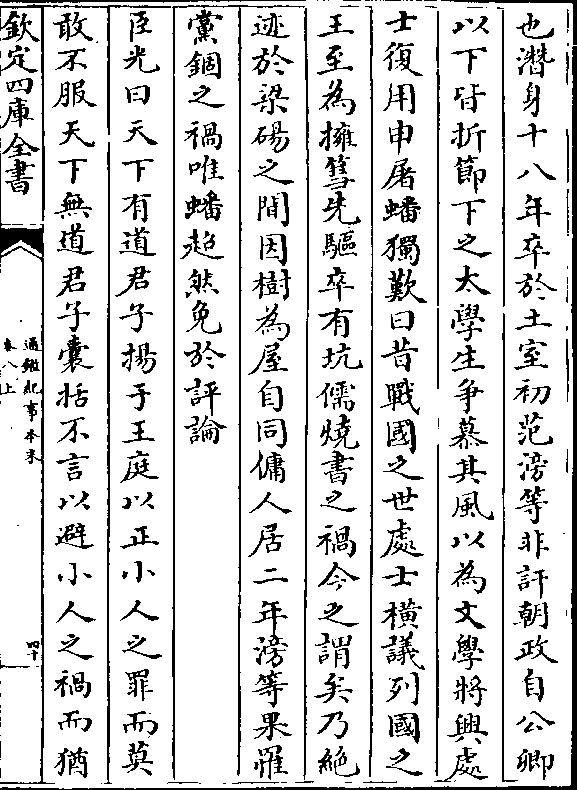 也潛身十八年卒於土室初范滂等非訐朝政自公卿
以下皆折節下之太學生爭慕其風以為文學將興處
士復用申屠蟠獨歎曰昔戰國之世處士橫議列國之
王至為擁篲先驅卒有坑儒燒書之禍今之謂矣乃絶
迹於梁碭之間因樹為屋自同傭人居二年滂等果罹
黨錮之禍唯蟠超然免於評論
臣光曰天下有道君子揚于王庭以正小人之罪而莫
敢不服天下無道君子囊括不言以避小人之禍而猶
欽定四庫全書
通鑑紀事本末
卷八上
四十